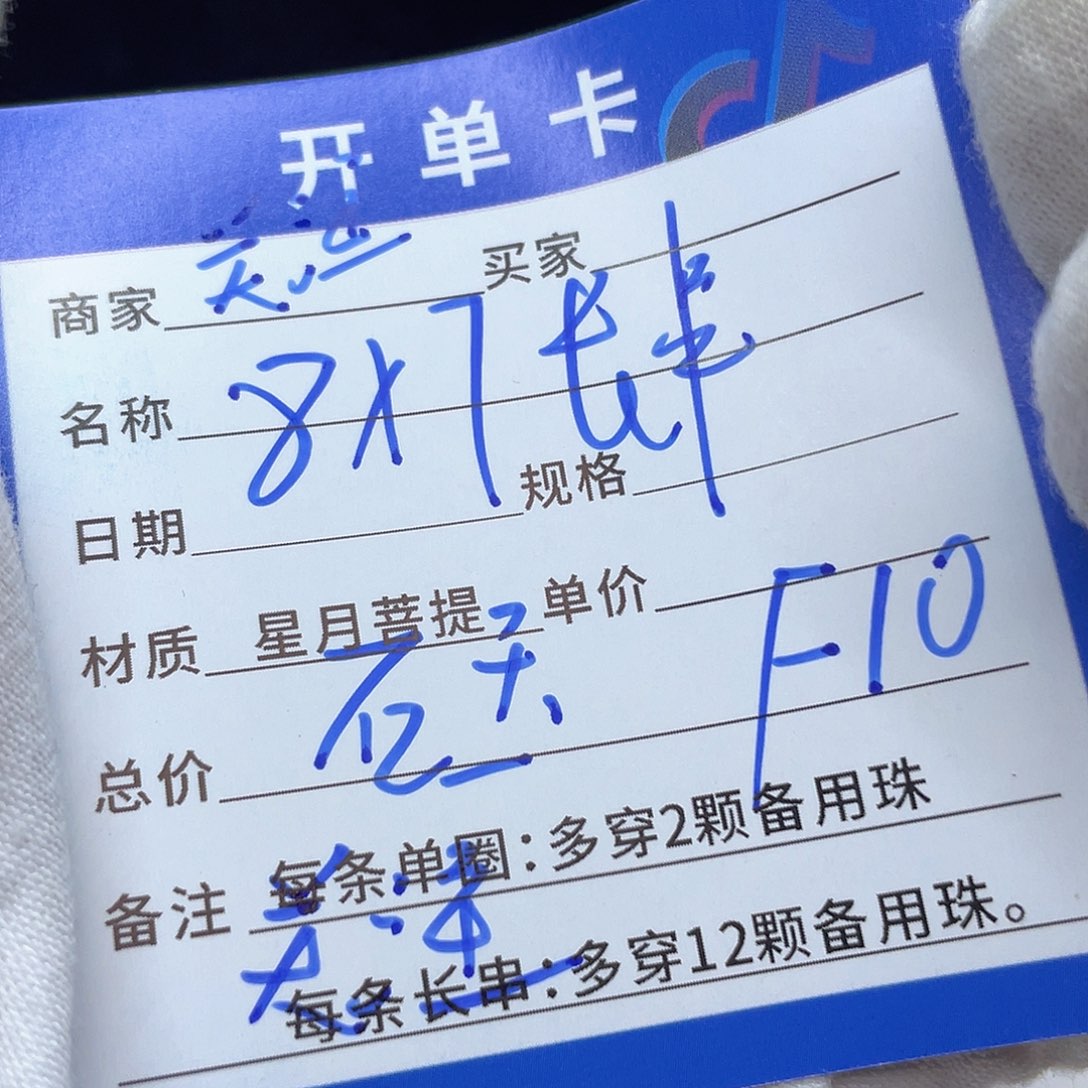 开单卡
商家 买家
名称 8X7长串
日期 规格
材质 星月菩提 单价 F10
总价
备注 每条单圈：多穿2颗备用珠
每条长串：多穿12颗备用珠。